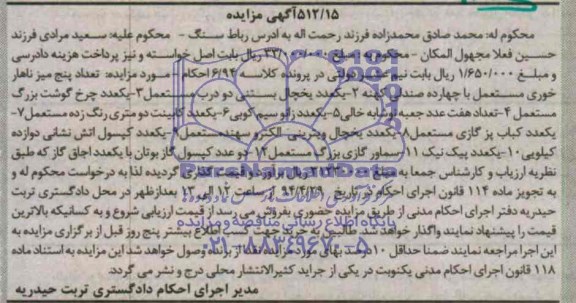 ۵۱۲/۱۵آگهی مزایده
محکوم له: محمد صادق محمدزاده فرزند رحمت اله به ادرس رباط سنگ - محکوم علیه: سعید مرادی فرزند
حسین فعلا مجهول المکان - محکوم به مبلغ ریال بابت اصل خواسته و نیز پرداخت هزینه دادرسی
و مبلغ ۱/۶۵۰/۰۰۰ ریال بابت نیم عشر دولتی در پرونده کلاسه ۶/۹۴ احکام - مورد مزایده: تعداد پنج میز ناهار
خوری مستعمل با چهارده صندلی کهنه ۲-یکعدد یخچال بستنی دو درب مستعمل ۳-یکعدد چرخ گوشت بزرگ
مستعمل ۴-تعداد هفت عدد جعبه نوشابه خالی ۵-یکعدد رانو سیم کوبی ۶-یکعدد کابینت دو متری رنگ زده مستعمل ۷-
یکعدد کباب پز گازی مستعمل ۸-یکعدد یخچال ویترینی الکترو سهند مستعمل ۹-یکعدد کپسول اتش نشانی دوازده
کیلویی ۱۰-یکعدد پیک نیک ۱۱-سماور گازی بزرگ مستعمل ۱۲-دو عدد کپسول گاز بوتان با یکعدد اجاق گاز که طبق
نظریه ارزیاب و کارشناس جمعا به مبلغ ریال براورد و قیمت گذاری گردیده لذا به درخواست محکوم له و
به تجویز ماده ۱۱۴ قانون اجرای احکام در تاریخ ۹۴/۴/۲۹ از ساعت ۱۲ الی ۱۳ بعدازظهر در محل دادگستری تربت
حیدریه دفتر اجرای احکام مدنی از طریق مزایده حضوری بفروش می رسد از قیمت ارزیابی شروع و به کسانیکه بالاترین
قیمت را پیشنهاد نمایند واگذار خواهد شد طالبین به خرید جهت کسب اطلاع بیشتر پنج روز قبل از برگزاری مزایده به
این اجرا مراجعه نمایند ضمنا حداقل ۱۰درصد بهای مورد مزایده نقدا از برنده وصول خواهد شد این مزایده به استناد ماده
۱۱۸ قانون اجرای احکام مدنی یکنوبت در یکی از جراید کثیرالانتشار محلی درج و نشر می گردد.
مدیر اجرای احکام دادگستری تربت حیدریه
پایگاه اطلاع رسانی مناقصه و مزایده
۰۲۱-۸۸۳۴۹۶۷۰-۵